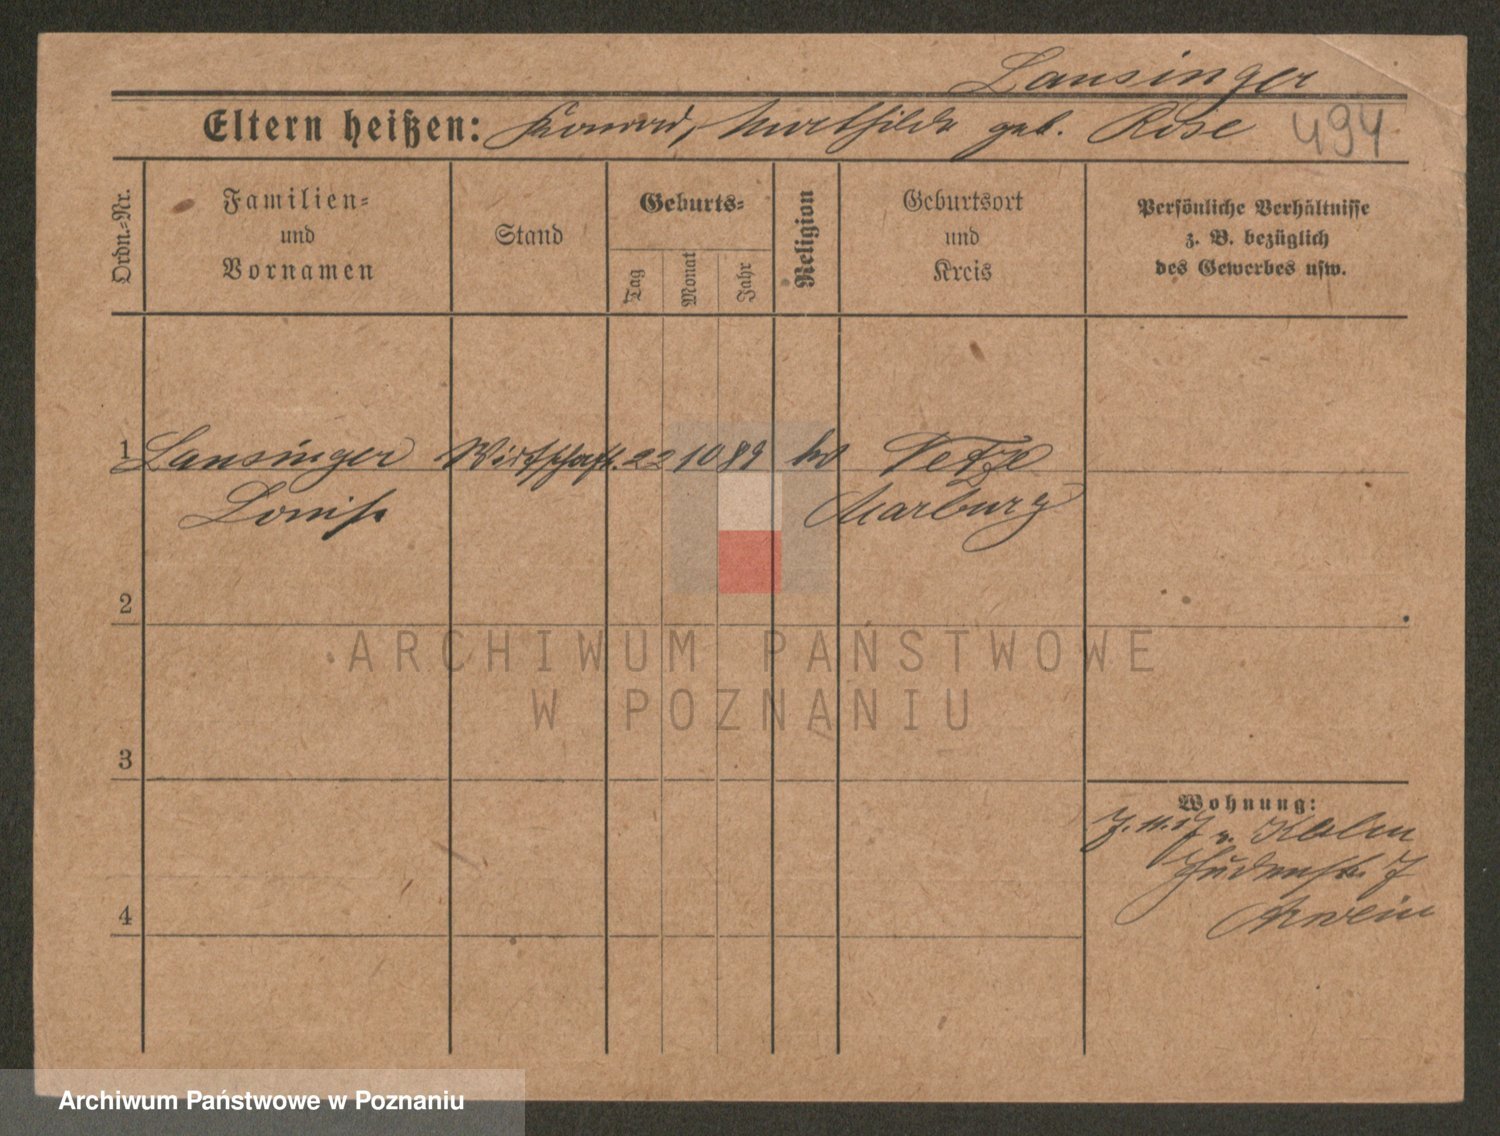 Lansinger
Eltern heißen: Konrad, Mathilde geb. Rose 494
Ordn.-Nr.
Familien-
und
Vornamen
Stand
Geburts-
Tag
Monat
Jahr
Religion
Geburtsort
und
Kreis
Persönliche Verhältnisse
z. B. bezüglich
des Gewerbes usw.
1 Lansinger Wirtschaft. 22 10 89 Vetze
Louise Marburg
2
3
4
Wohnung:
v.
ARCHIWUM PAŃSTWOWE
W POZNANIU
Archiwum Państwowe w Poznaniu